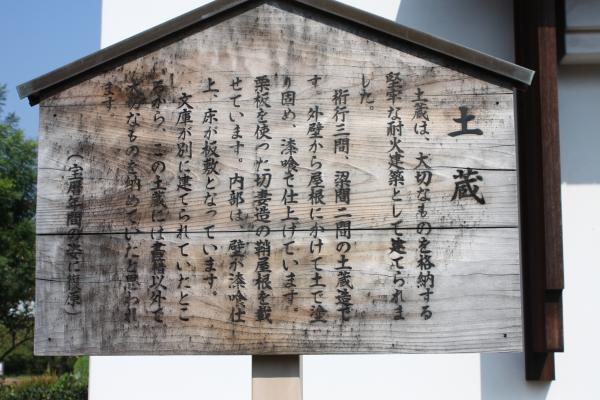 土蔵
土蔵は、大切なものを格納する
堅牢な耐火建築として建てられま
した。
桁行三間、梁間二間の土蔵造で
す。外壁から屋根にかけて土で塗
り固め、漆喰で仕上げています。
栗板を使った切妻造の鞘屋根を載
せています。内部は、壁が漆喰仕
上、床が板敷となっています。
文庫が別に建てられていたとこ
ろから、この土蔵には書籍以外で
大切なものを納めていたと思われ
ます。
(宝暦年間の姿に復原)